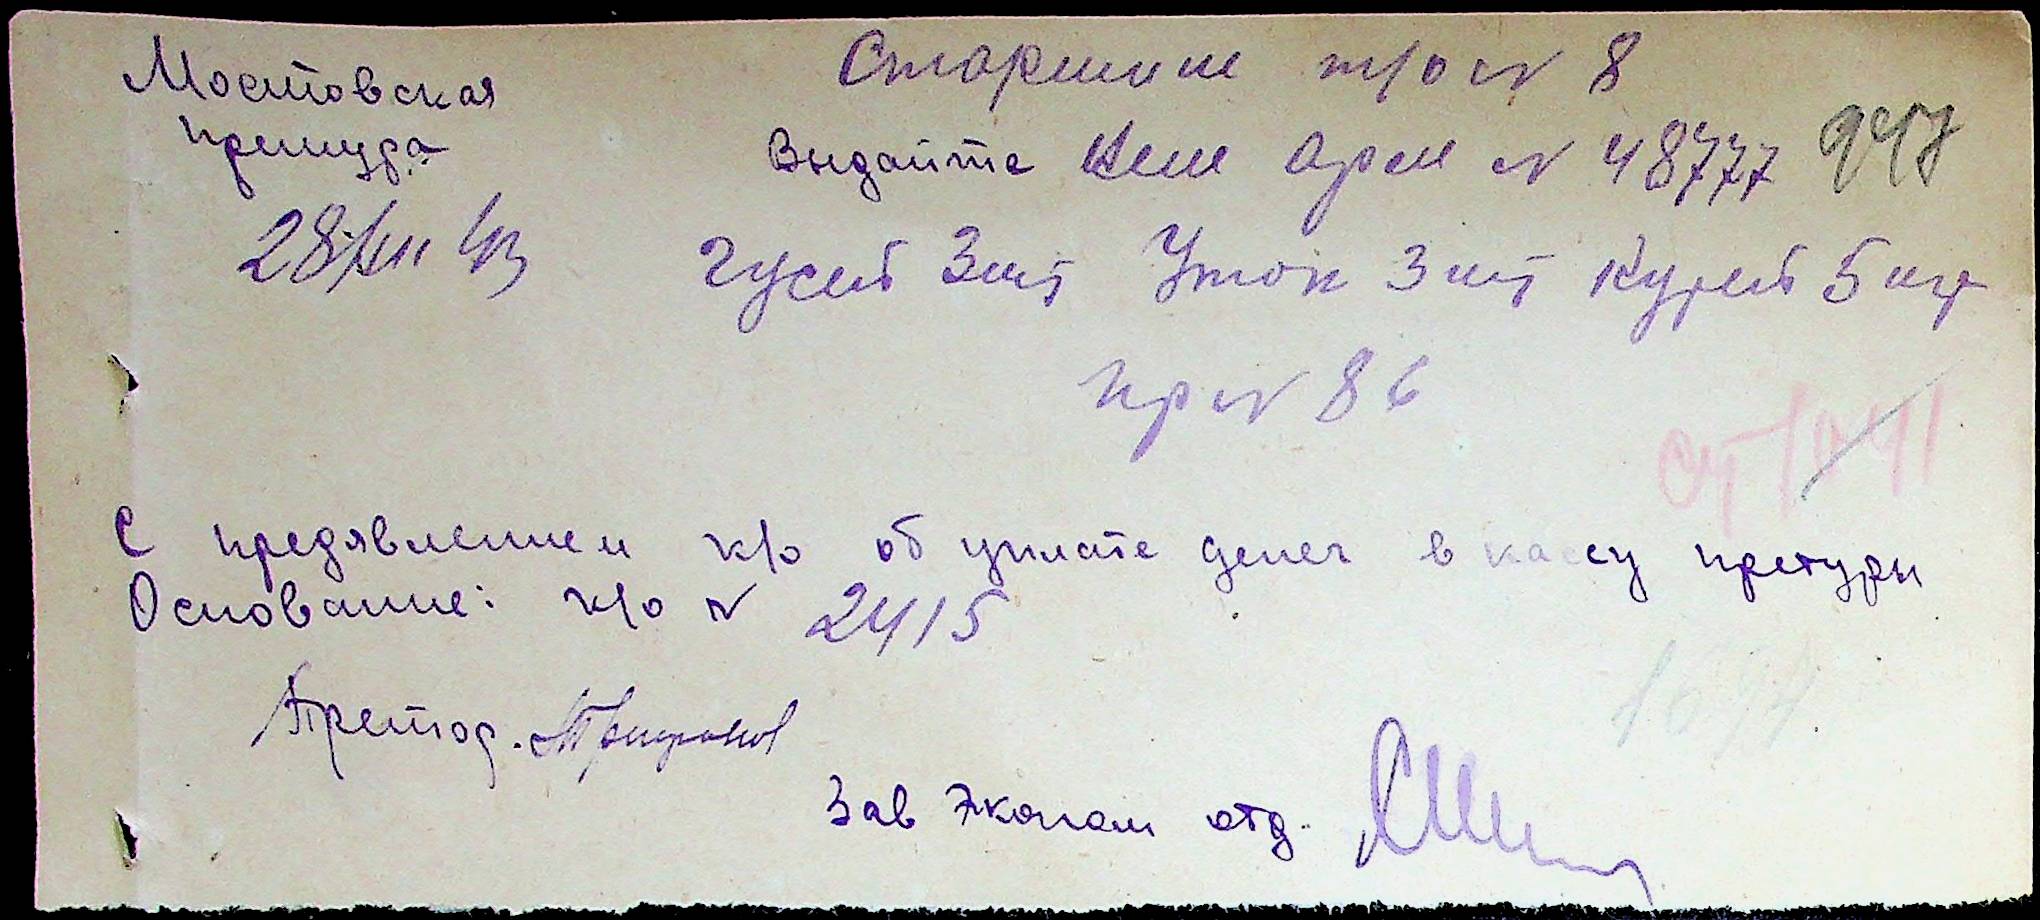 Мостовская
претура
28/XII 43
Старшине т/о № 8
Выдайте Нем Арм № 48777
гусей 3 шт Уток 3 шт Курей 5 шт
пр № 86
С предявлением к/о об уплате денег в кассу претуры
Основание: к/о № 2415
Претор.
Зав Эконом отд.